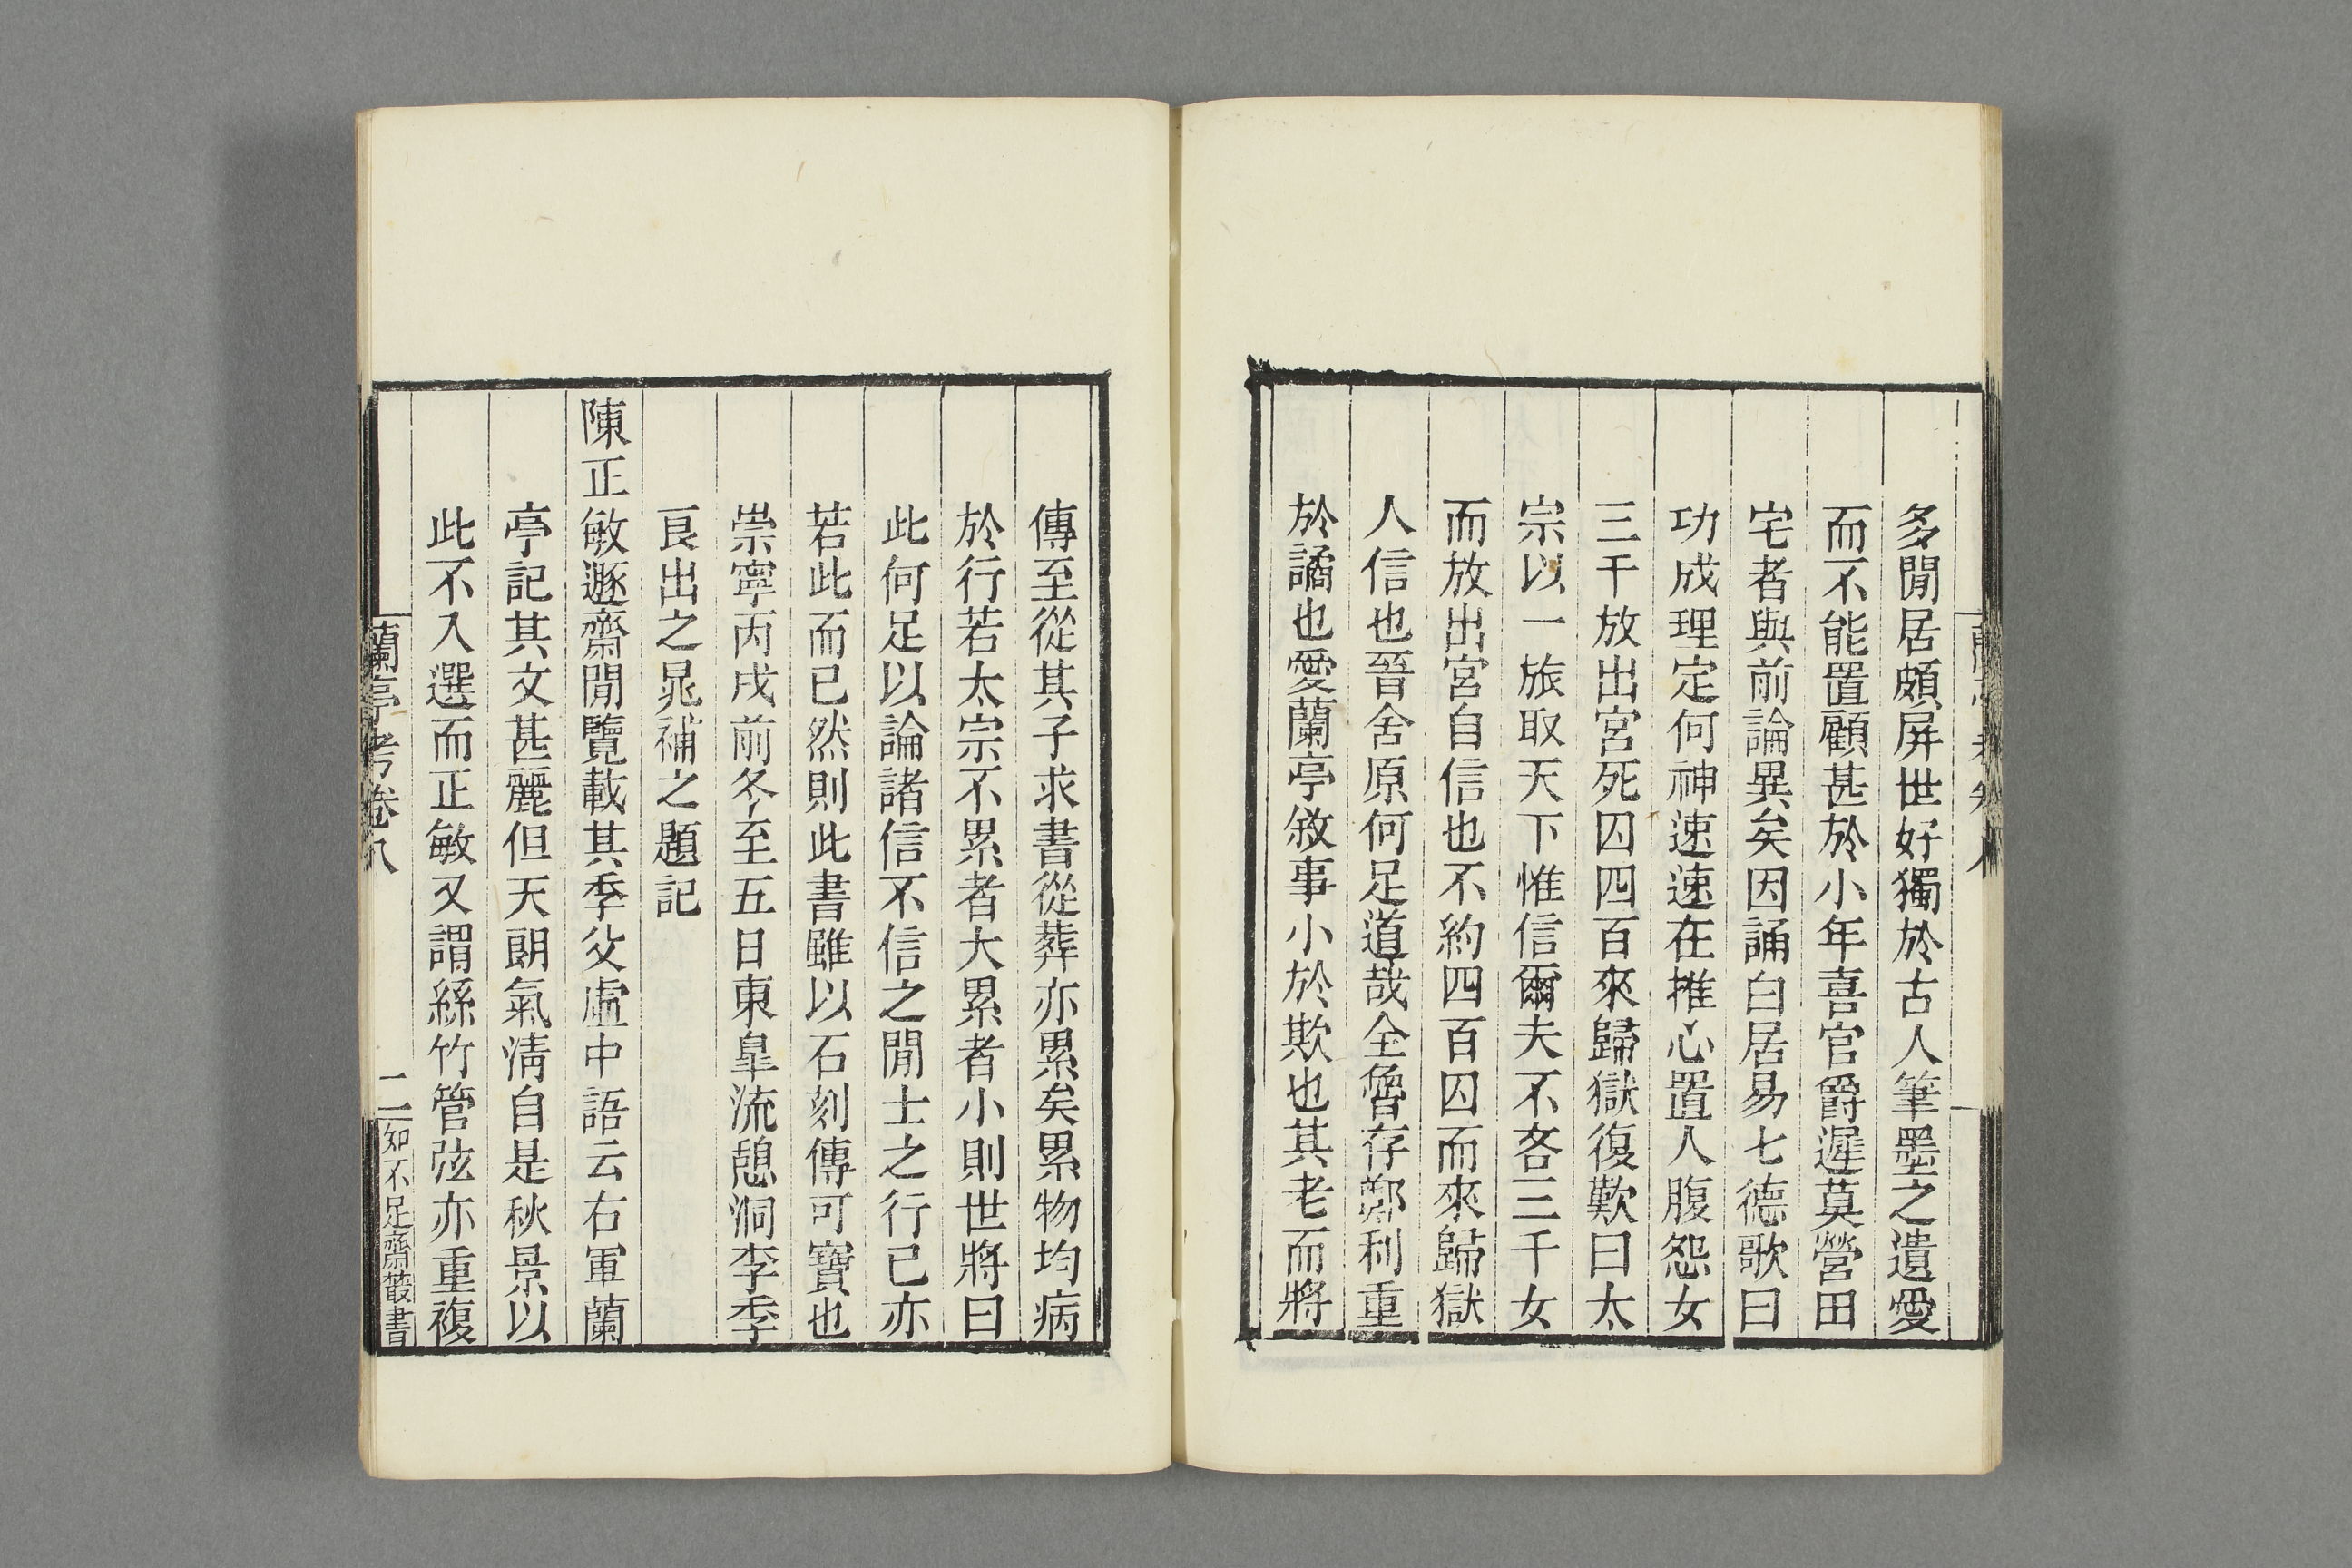 多閒居頗屏世好獨於古人筆墨之遺愛
而不能置顧甚於小年喜官爵遲莫營田
宅者與前論異矣因誦白居易七德歌曰
功成理定何神速速在推心置人腹怨女
三千放出宮死囚四百來歸獄復歎曰太
宗以一旅取天下惟信爾夫不吝三千女
而放出宮自信也不約四百囚而來歸獄
人信也晉舍原何足道哉全魯存鄭利重
於譎也愛蘭亭敘事小於欺也其老而將
傳至從其子求書從葬亦累矣累物均病
於行若太宗不累者大累者小則世將曰
此何足以論諸信不信之閒士之行已亦
若此而已然則此書雖以石刻傳可寶也
崇寧丙戌前冬至五日東皐流憩洞李季
良出之晁補之題記
陳正敏遯齋閒覽載其季父虛中語云右軍蘭
亭記其文甚麗但天朗氣淸自是秋景以
此不入選而正敏又謂絲竹管弦亦重複
蘭亭考卷八
二
知不足齋叢書